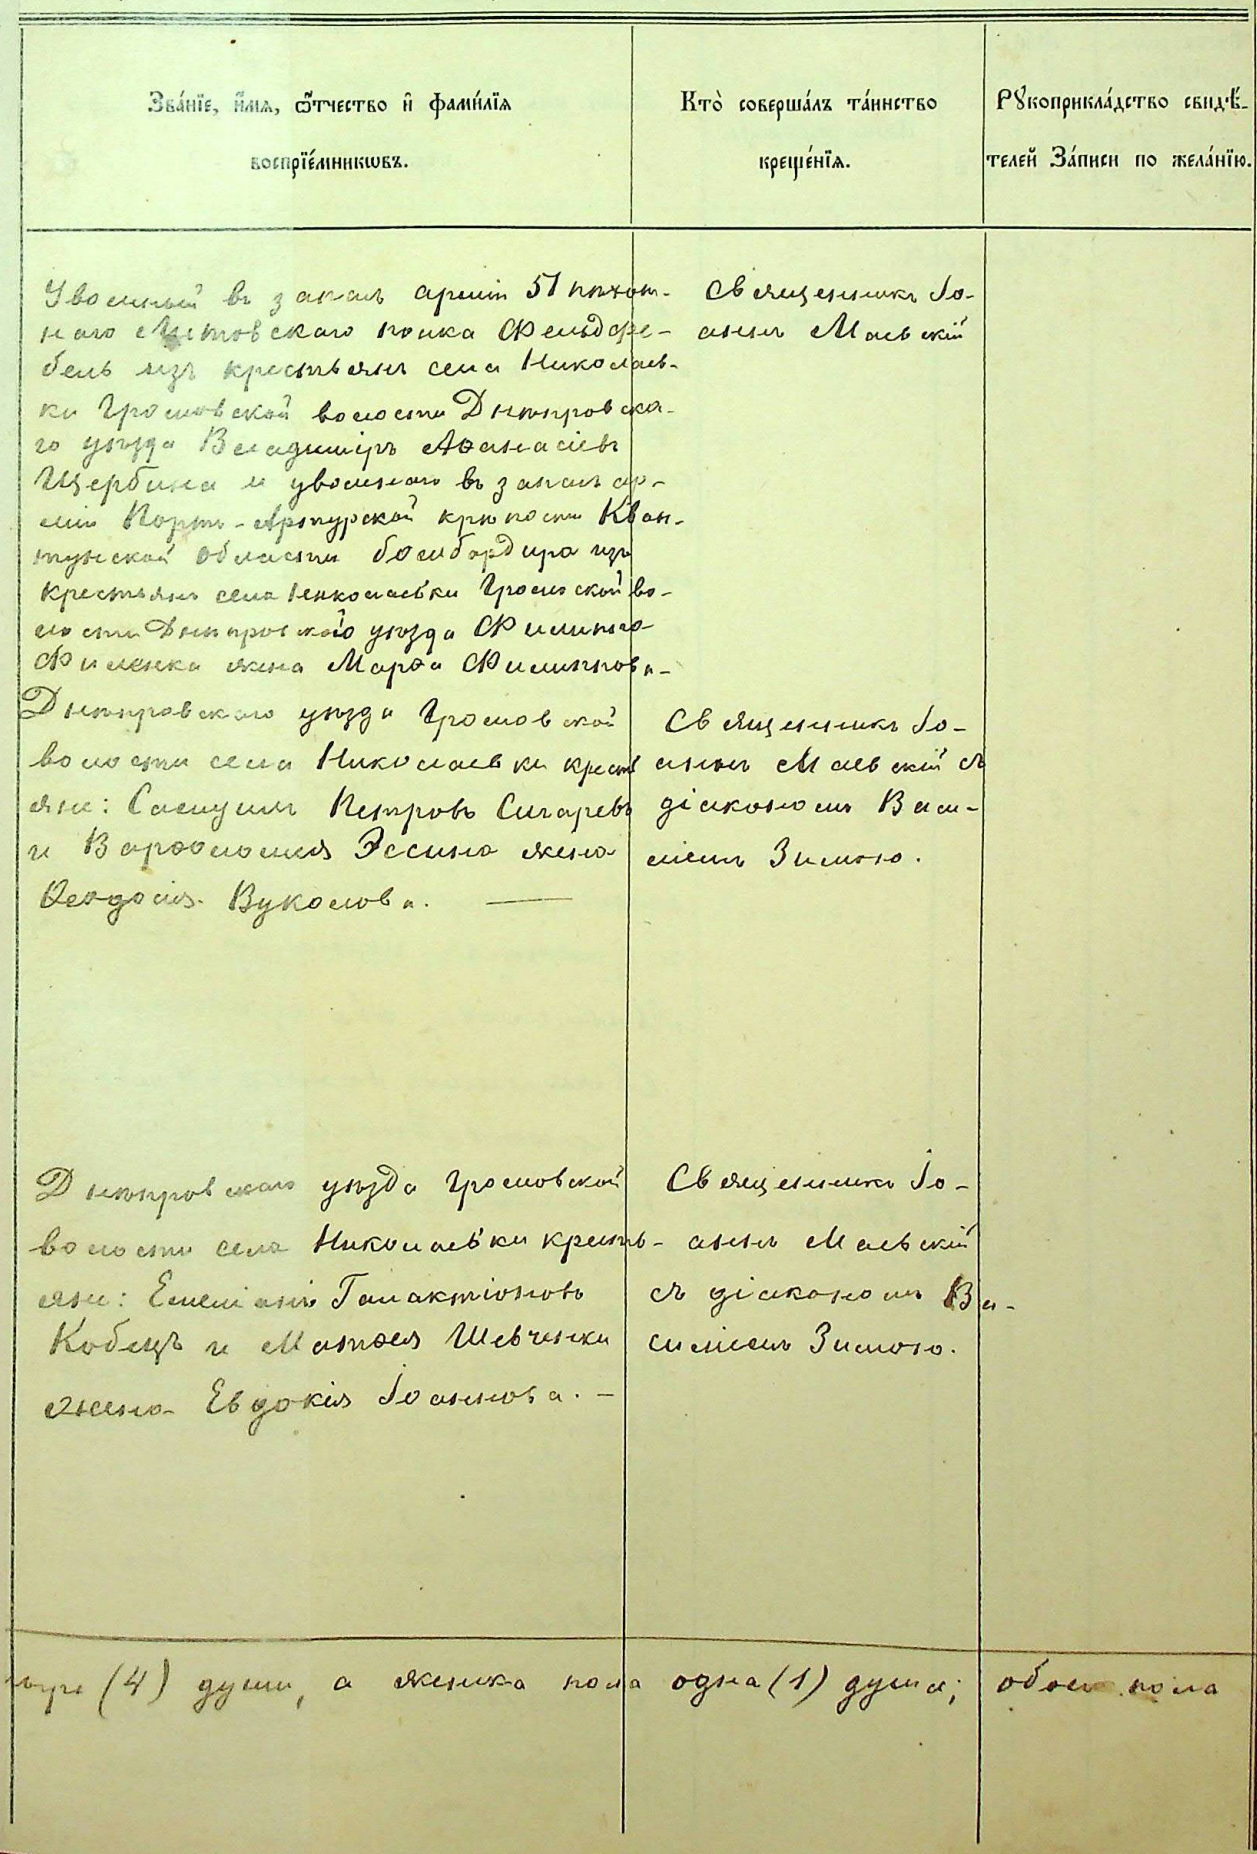 Зва́нїе, и́мѧ, ѻ҆́тчество и҆ фами́лїѧ
воспрїе́мникѡвъ.
Кто̀ соверша́лъ та́инство
креще́нїѧ.
Рꙋкоприкла́дство свидѣ́-
телей За́писи по жела́нїю.
Уволеный въ запасъ арміи 51 пѣхот-
наго Литовскаго полка Фельдфе-
бель изъ крестьянъ села Николаев-
ки Громовской волости Днѣпровска-
го уѣзда Владиміръ Аѳанасіевъ
Щербина и уволенаго въ запасъ ар-
міи Портъ-Артурской крѣпости Кван-
тунской области бомбардира изъ
крестьянъ села Николаевки Громовской во-
лости Днѣпровскаго уѣзда Филиппа
Филенка жена Марѳа Филиппова-
Священникъ Іо-
аннъ Маевскій
Днѣпровскаго уѣзда Громовской
волости села Николаевки кресть
яне: Самуилъ Петровъ Сигаревъ
и Варѳоломея Эссина жена
Ѳеодосія Вуколова.
Священникъ Іо-
аннъ Маевскій съ
діакономъ Васи-
ліемъ Зимою.
Днѣпровскаго уѣзда Громовской
волости села Николаевки кресть-
яне: Емеліанъ Галактіоновъ
Кобецъ и Матѳея Шевченки
жена Евдокія Іоаннова. -
Священникъ Іо-
аннъ Маевскій
съ діакономъ Ва-
силіемъ Зимою.
тыре (4) души, а женска пола одна (1) душа; обоего пола